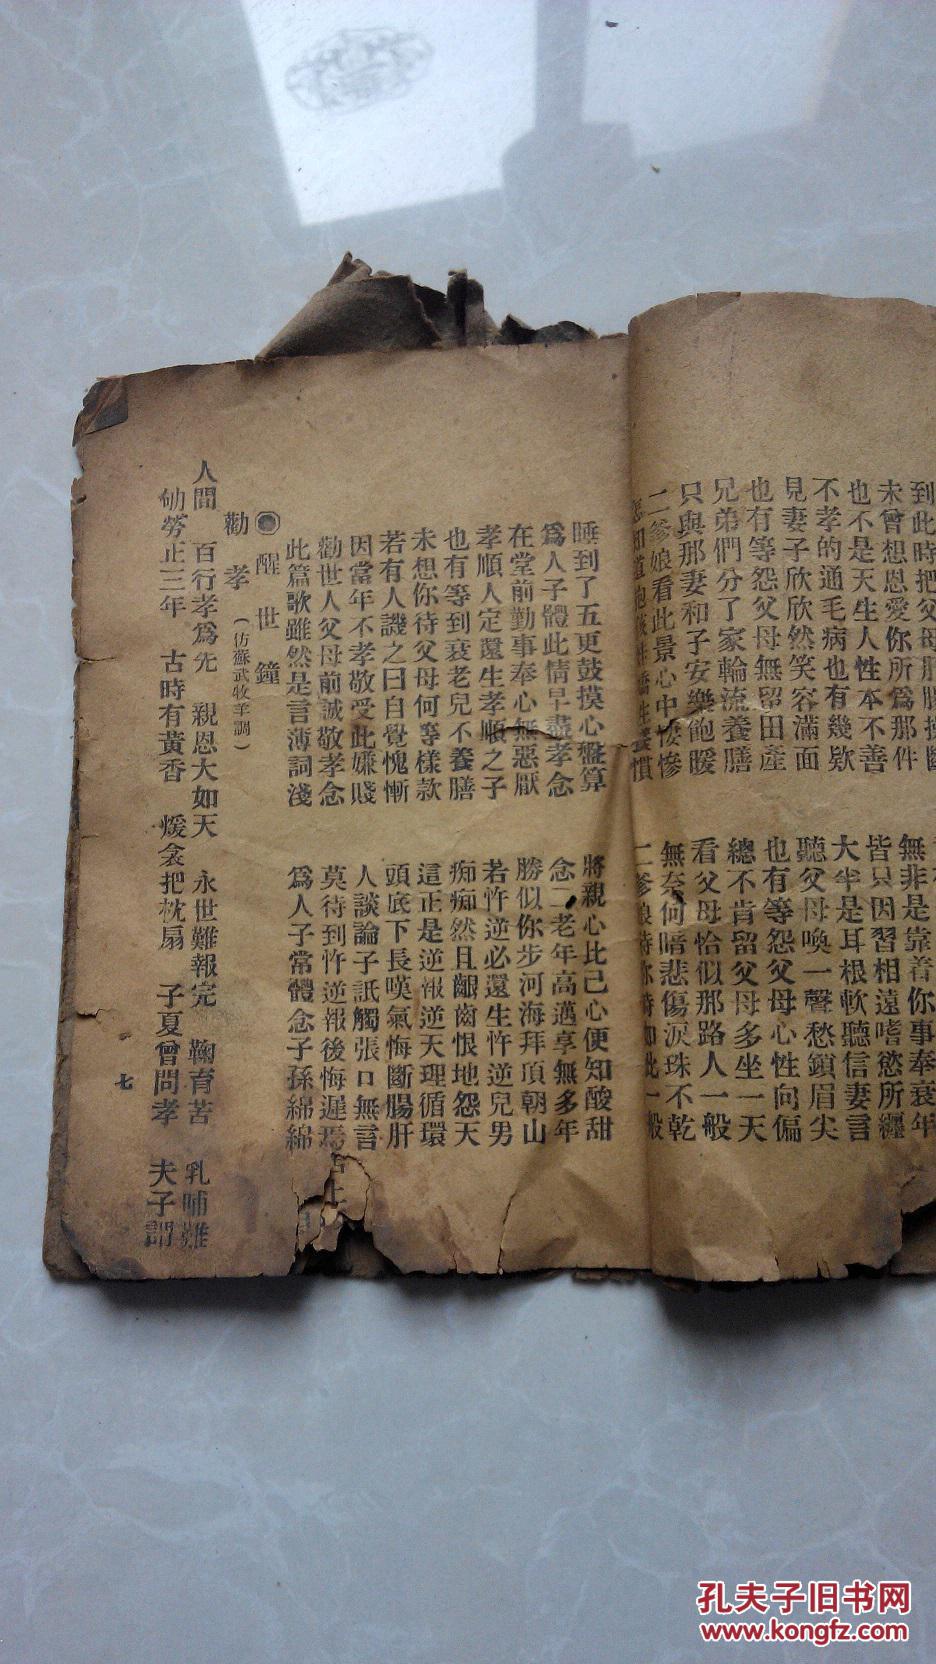 到此時把父母肝腸
無非是靠着你事奉衰年
未曾想恩愛你所爲那件
皆只因習相遠嗜慾所纒
也不是天生人性本不善
大半是耳根軟聽信妻言
不孝的通毛病也有幾欵
聽父母喚一聲愁鎖眉尖
見妻子欣欣然笑容滿面
也有等怨父母心性向偏
也有等怨父母無留田產
總不肯留父母多坐一天
兄弟們分了家輪流養膳
看父母恰似那路人一般
只與那妻和子安樂飽暖
無奈何暗悲傷淚珠不乾
二爹娘看此景心中悽慘
睡到了五更鼓摸心盤算
將親心比己心便知酸甜
爲人子體此情早盡孝念
念二老年高邁享無多年
在堂前勤事奉心無惡厭
勝似你步河海拜頂朝山
孝順人定還生孝順之子
若忤逆必還生忤逆兒男
也有等到衰老兒不養膳
痴痴然且齦齒恨地怨天
未想你待父母何等樣款
這正是逆報逆天理循環
若有人譏之曰自覺愧慚
頭底下長嘆氣悔斷腸肝
因當年不孝敬受此嫌賤
人談論子詆觸張口無言
勸世人父母前誠敬孝念
莫待到忤逆報後悔遲焉
此篇歌雖然是言薄詞淺
爲人子常體念子孫綿綿
醒世鐘
勸孝（仿蘇武牧羊調）
人間 百行孝爲先 親恩大如天 永世難報完 鞠育苦 乳哺難
劬勞正三年 古時有黃香 煖衾把枕扇 子夏曾問孝 夫子謂
七
孔夫子旧书网
www.kongfz.com